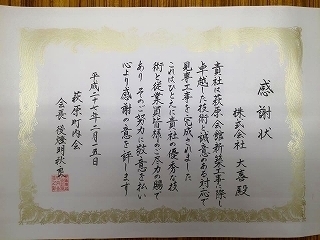 感謝状
株式会社 大喜殿
貴社は萩原会館新築工事に際し
卓越した技術と誠意のある対応で
見事工事を完成されました
これはひとえに貴社の優秀な技
術と従業員皆様のご尽力の賜で
あり そのご努力に敬意を払い
心より感謝の意を評します
平成二十七年二月一五日
萩原町内会
会長 後燈明秋良